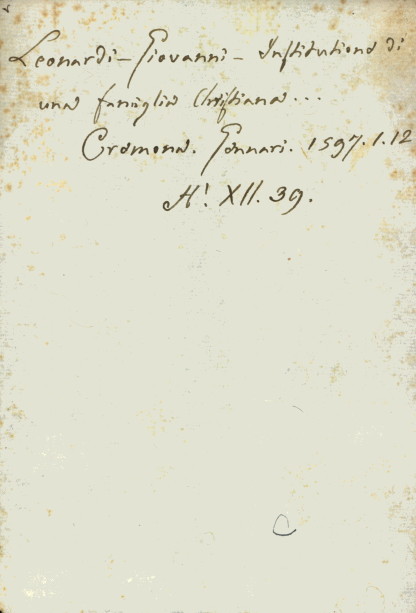 Leonardi - Giovanni - Institutione di
una famiglia Christiana...
Cremona. Zannari. 1597. 1. 12
H! XII. 39.